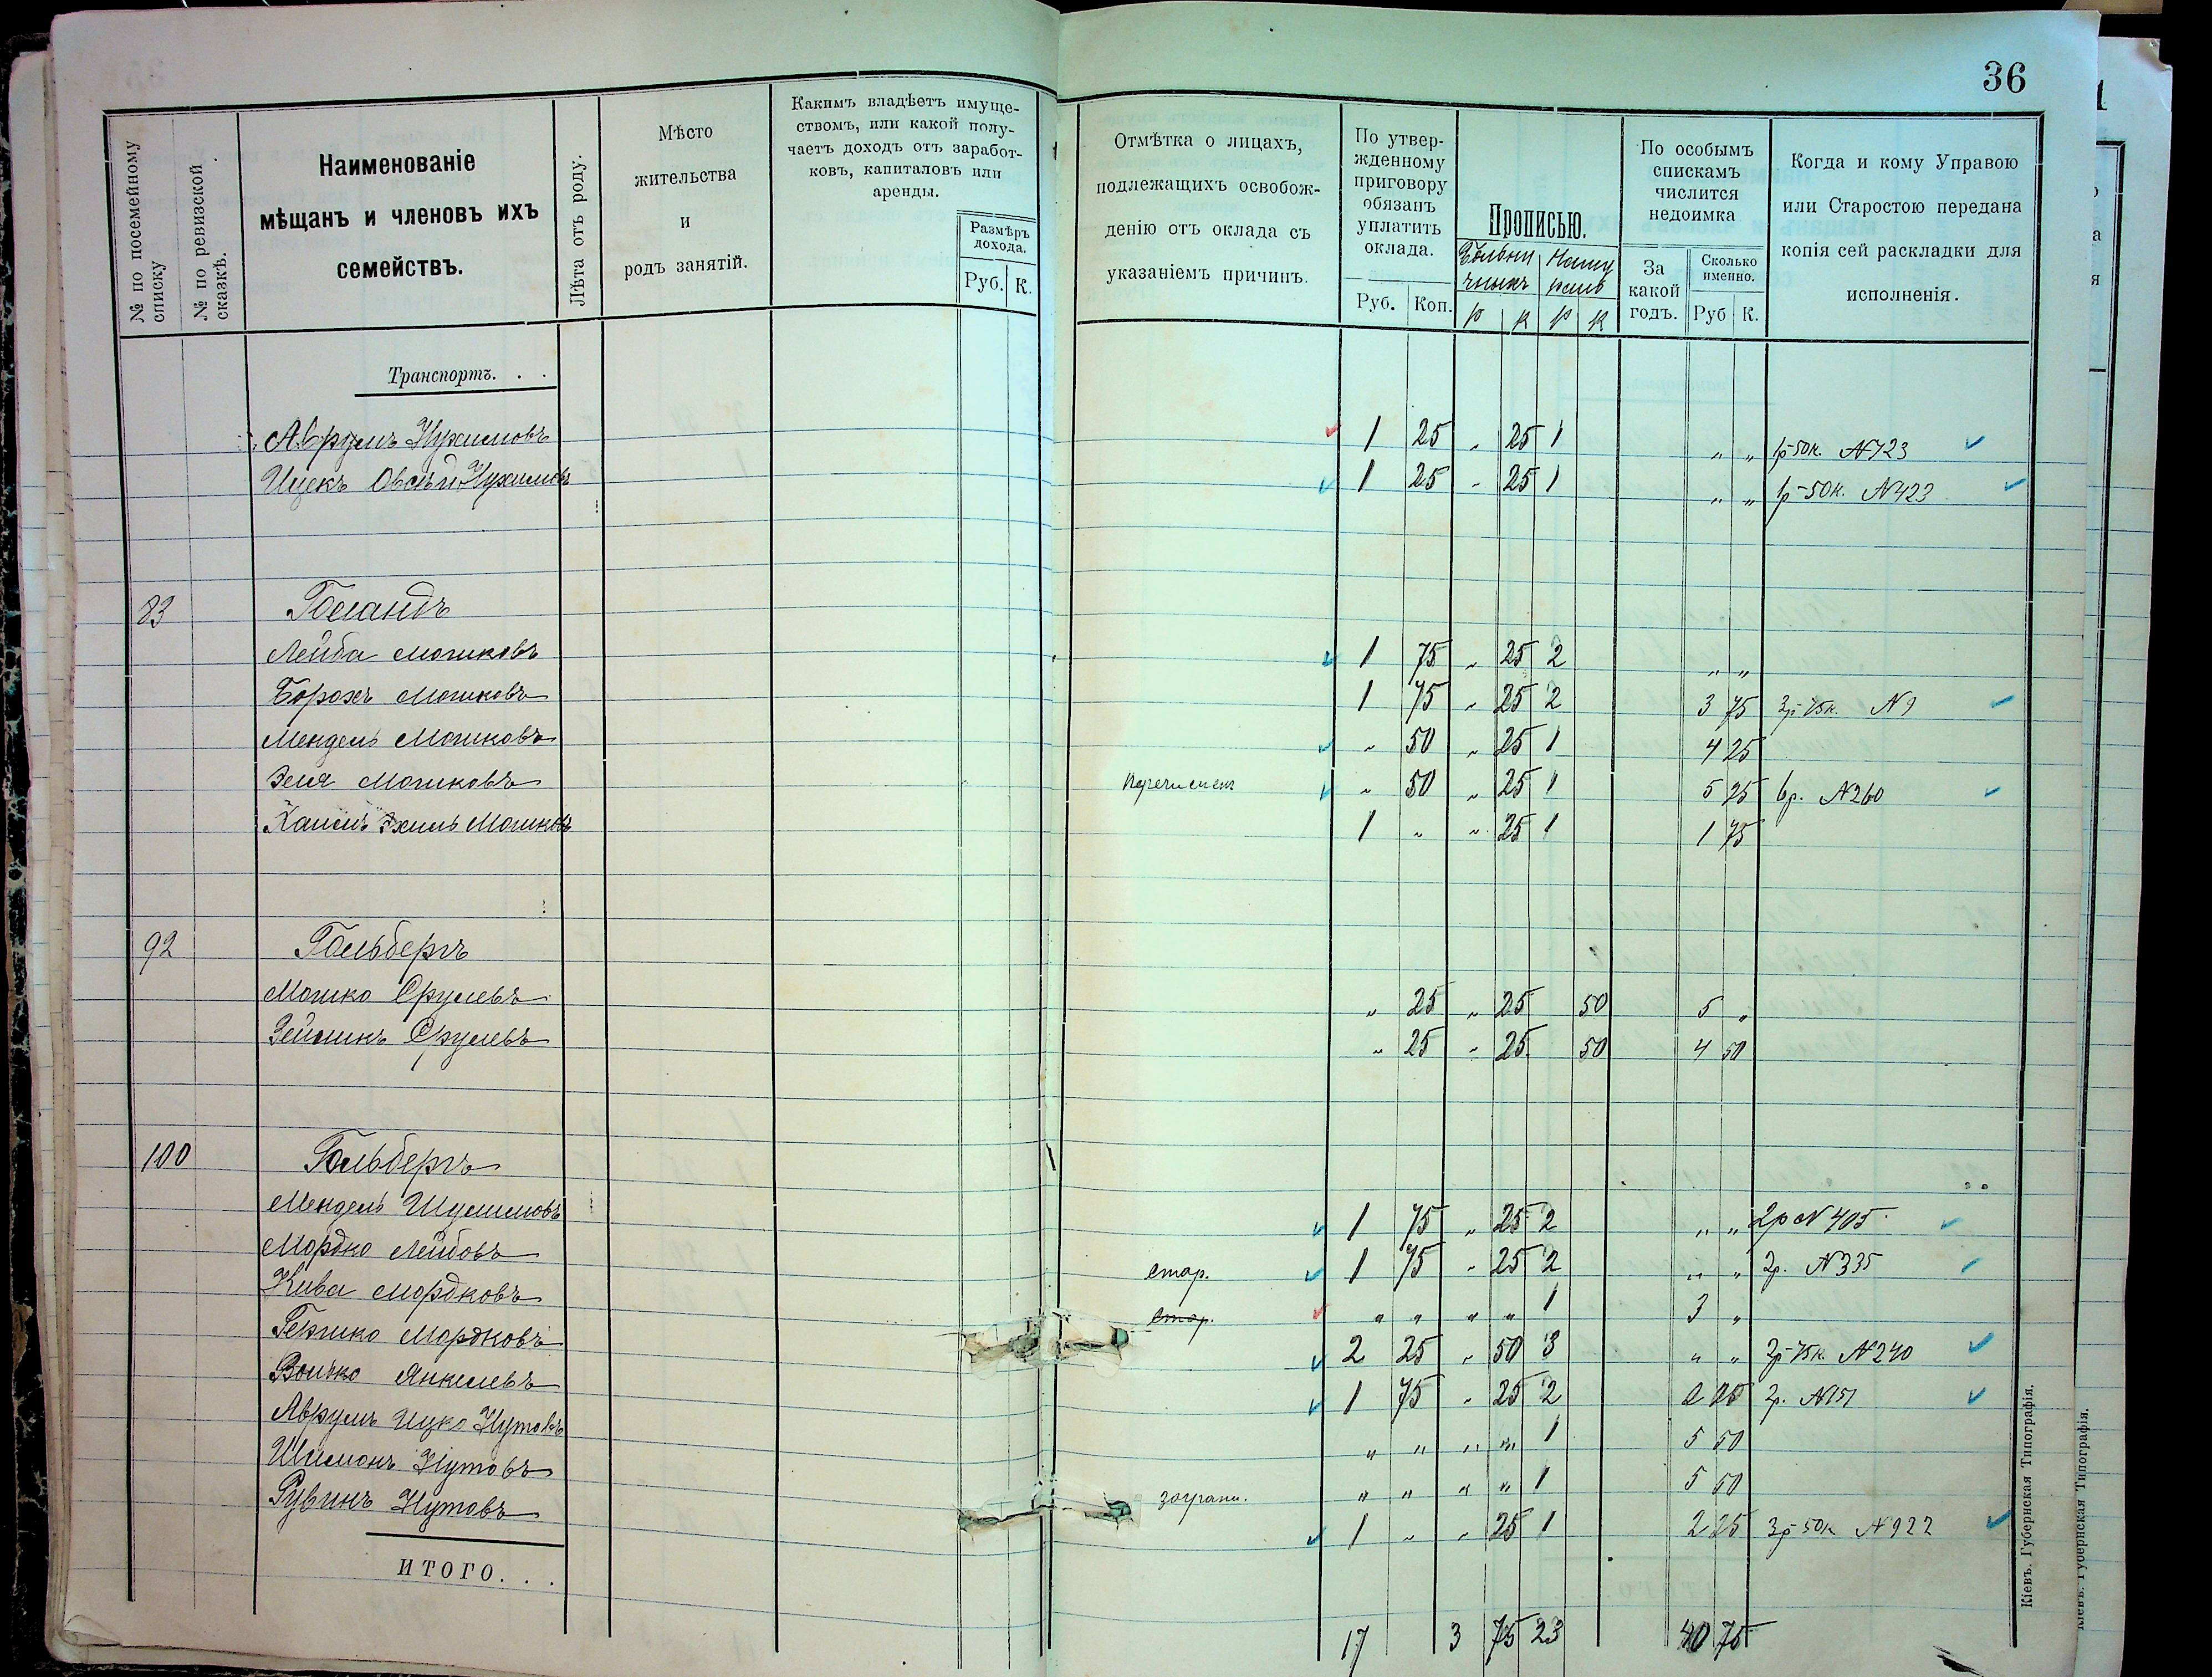 36
№ по посемейному списку
№ по ревизской сказкѣ.
Наименованіе
мѣщанъ и членовъ ихъ
семействъ.
Лѣта отъ роду.
Мѣсто
жительства
и
родъ занятій.
Какимъ владѣетъ имуще-
ствомъ, или какой полу-
чаетъ доходъ отъ заработ-
ковъ, капиталовъ или
аренды.
Размѣръ
дохода.
Руб. К.
Отмѣтка о лицахъ,
подлежащихъ освобож-
денію отъ оклада съ
указаніемъ причинъ.
По утвер-
жденному
приговору
обязанъ
уплатить
оклада.
Руб. Коп.
Прописью.
р к р к
По особымъ
спискамъ
числится
недоимка
За
какой
годъ.
Сколько
именно.
Руб К.
Когда и кому Управою
или Старостою передана
копія сей раскладки для
исполненія.
Транспортъ. . .
Аврумъ Нухимовъ 1 25 „ 25 1 „ „ 1р-50к. N423
Ицекъ Овсѣй Нухимовъ 1 25 „ 25 1 „ „ 1р-50к. N423
83 Голандъ
Лейба Мошковъ 1 75 „ 25 2 „ „
Борохъ Мошковъ 1 75 „ 25 2 3 75 3р-75к. N9
Мендель Мошковъ „ 50 „ 25 1 4 25
Зеля Мошковъ перечисленъ „ 50 „ 25 1 5 25 6р. N260
Хаимъ Мошковъ 1 „ „ 25 1 1 75
92 Гольбергъ
Мошко Срулевъ „ 25 „ 25 50 5 „
Зейликъ Срулевъ „ 25 „ 25 50 4 50
100 Гольбергъ
Мендель Шулимовъ 1 75 „ 25 2 „ „ 2р N405
Мордко Лейбовъ стар. 1 75 „ 25 2 „ „ 2р. N335
Кива Мордковъ стар. „ „ „ „ 1 3 „
Гершко Мордковъ 2 25 „ 50 3 „ „ 2р-75к. N240
Волько Янкелевъ 1 75 „ 25 2 2 25 2р. N151
Аврумъ Ицко Нутовъ „ „ „ „ 1 5 50
Шимонъ Нутовъ заграни. „ „ „ „ 1 5 50
Рувинъ Нутовъ 1 „ „ 25 1 2 25 3р-50к N922
ИТОГО. . .
17 3 75 23 40 75
Кіевъ. Губернская Типографія.
Кіевъ. Губернская Типографія.